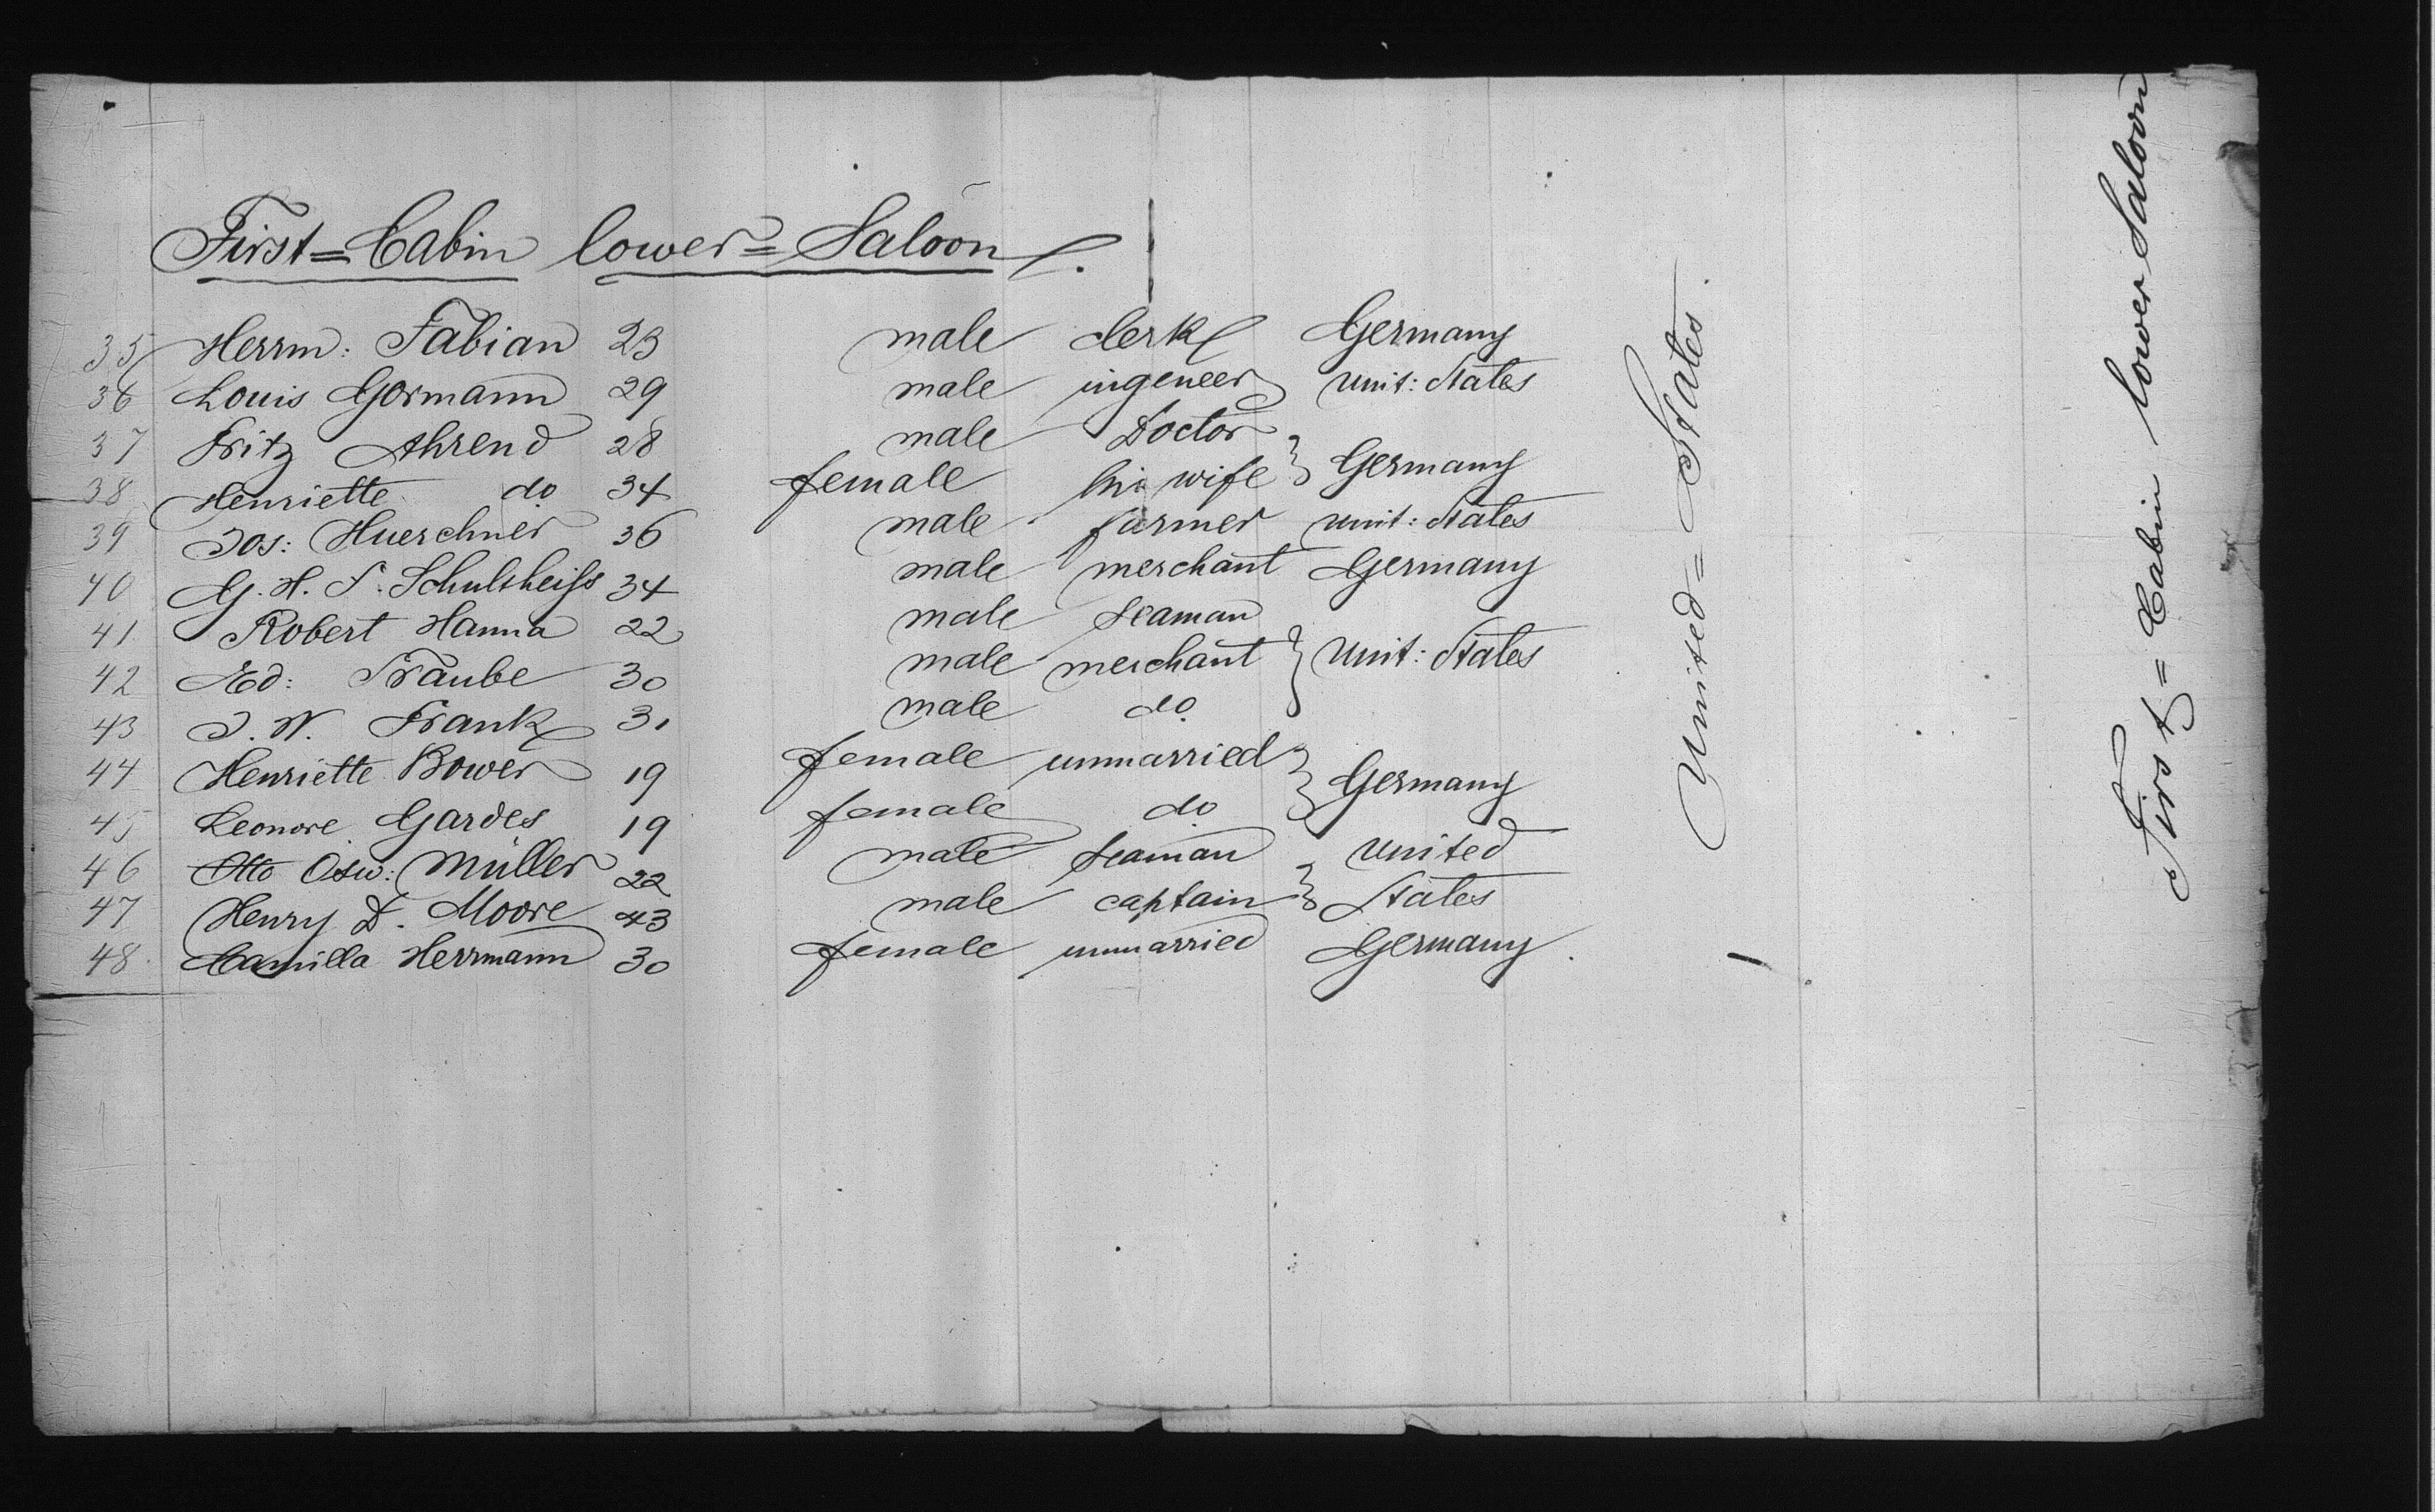 First=Cabin lower=Saloon.
35 Herrm: Fabian 23 male clerk Germany
36 Louis Gormann 29 male ingeneer unit: States
37 Fritz Ahrend 28 male Doctor
38 Henriette do 34 female his wife } Germany
39 Jos: Huerchner 36 male farmer unit: States
40 G. H. S. Schultheiſs 34 male merchant Germany
41 Robert Hanna 22 male seaman
42 Ed: Traube 30 male merchant } unit: States
43 J. W. Frank 31 male do
44 Henriette Bower 19 female unmarried
45 Leonore Gardes 19 female do } Germany
46 Otto Osw: Müller 22 male seaman } united
47 Henry D. Moore 43 male captain States
48. Camilla Herrmann 30 female unmarried Germany.
United=States.
First=Cabin lower Saloon